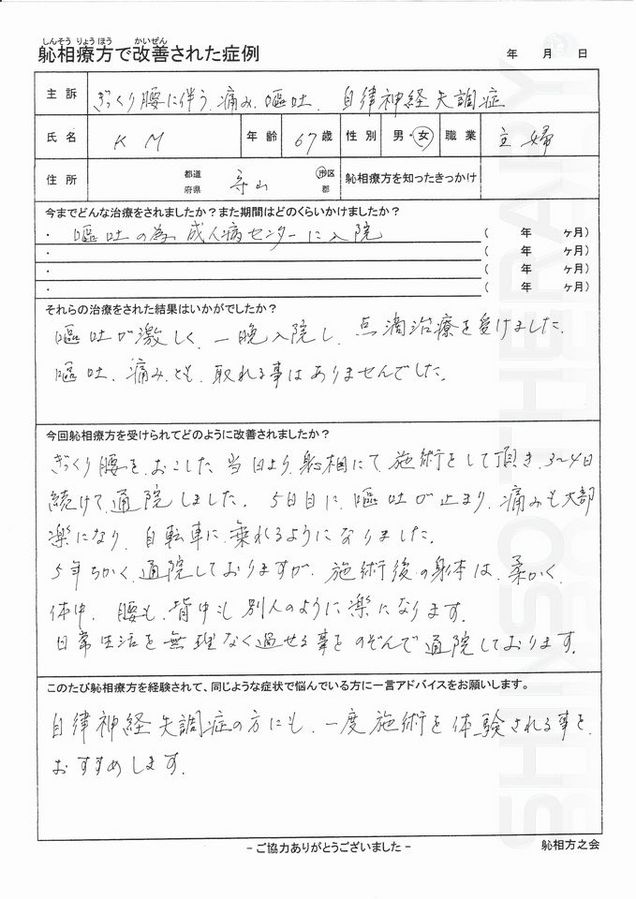 しんそう りょうほう かいぜん
躰相療方で改善された症例
年 月 日
主訴 ぎっくり腰に伴う痛み、嘔吐、自律神経失調症
氏名 K M 年齢 67歳 性別 男・女 職業 主婦
住所 都道府県 守山 市区郡 躰相療方を知ったきっかけ
今までどんな治療をされましたか?また期間はどのくらいかけましたか?
・ 嘔吐の為 成人病センターに入院 ( 年 ヶ月)
・ ( 年 ヶ月)
・ ( 年 ヶ月)
・ ( 年 ヶ月)
それらの治療をされた結果はいかがでしたか?
嘔吐が激しく、一晩入院し、点滴治療を受けました。
嘔吐、痛み、とも、取れる事はありませんでした。
今回躰相療方を受けられてどのように改善されましたか?
ぎっくり腰を、おこした当日より、躰相にて施術をして頂き、3~4日
続けて、通院しました。5日目に、嘔吐が止まり、痛みも大部
楽になり、自転車に、乗れるようになりました。
5年ちかく、通院しておりますが、施術後の身体は、柔かく、
体中、腰も、背中も別人のように楽になります。
日常生活を無理なく過せる事をのぞんで通院しております。
このたび躰相療方を経験されて、同じような症状で悩んでいる方に一言アドバイスをお願いします。
自律神経失調症の方にも、一度施術を体験される事を、
おすすめします。
- ご協力ありがとうございました -
躰相方之会
SHINSOTHERAPY